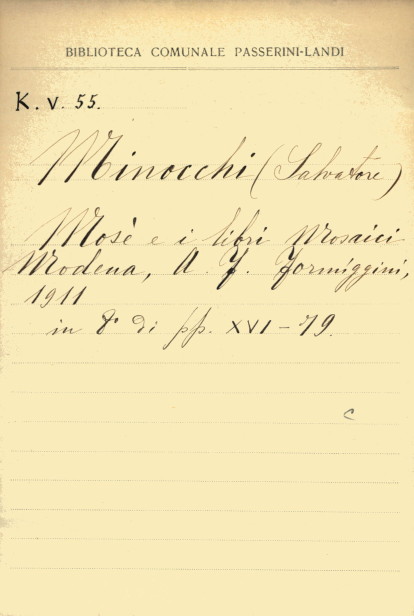 BIBLIOTECA COMUNALE PASSERINI-LANDI
K. V. 55.
Minocchi (Salvatore)
Mosè e i libri Mosaici
Modena, A. F. Formiggini,
1911
in 8° di pp. XVI-79.
c